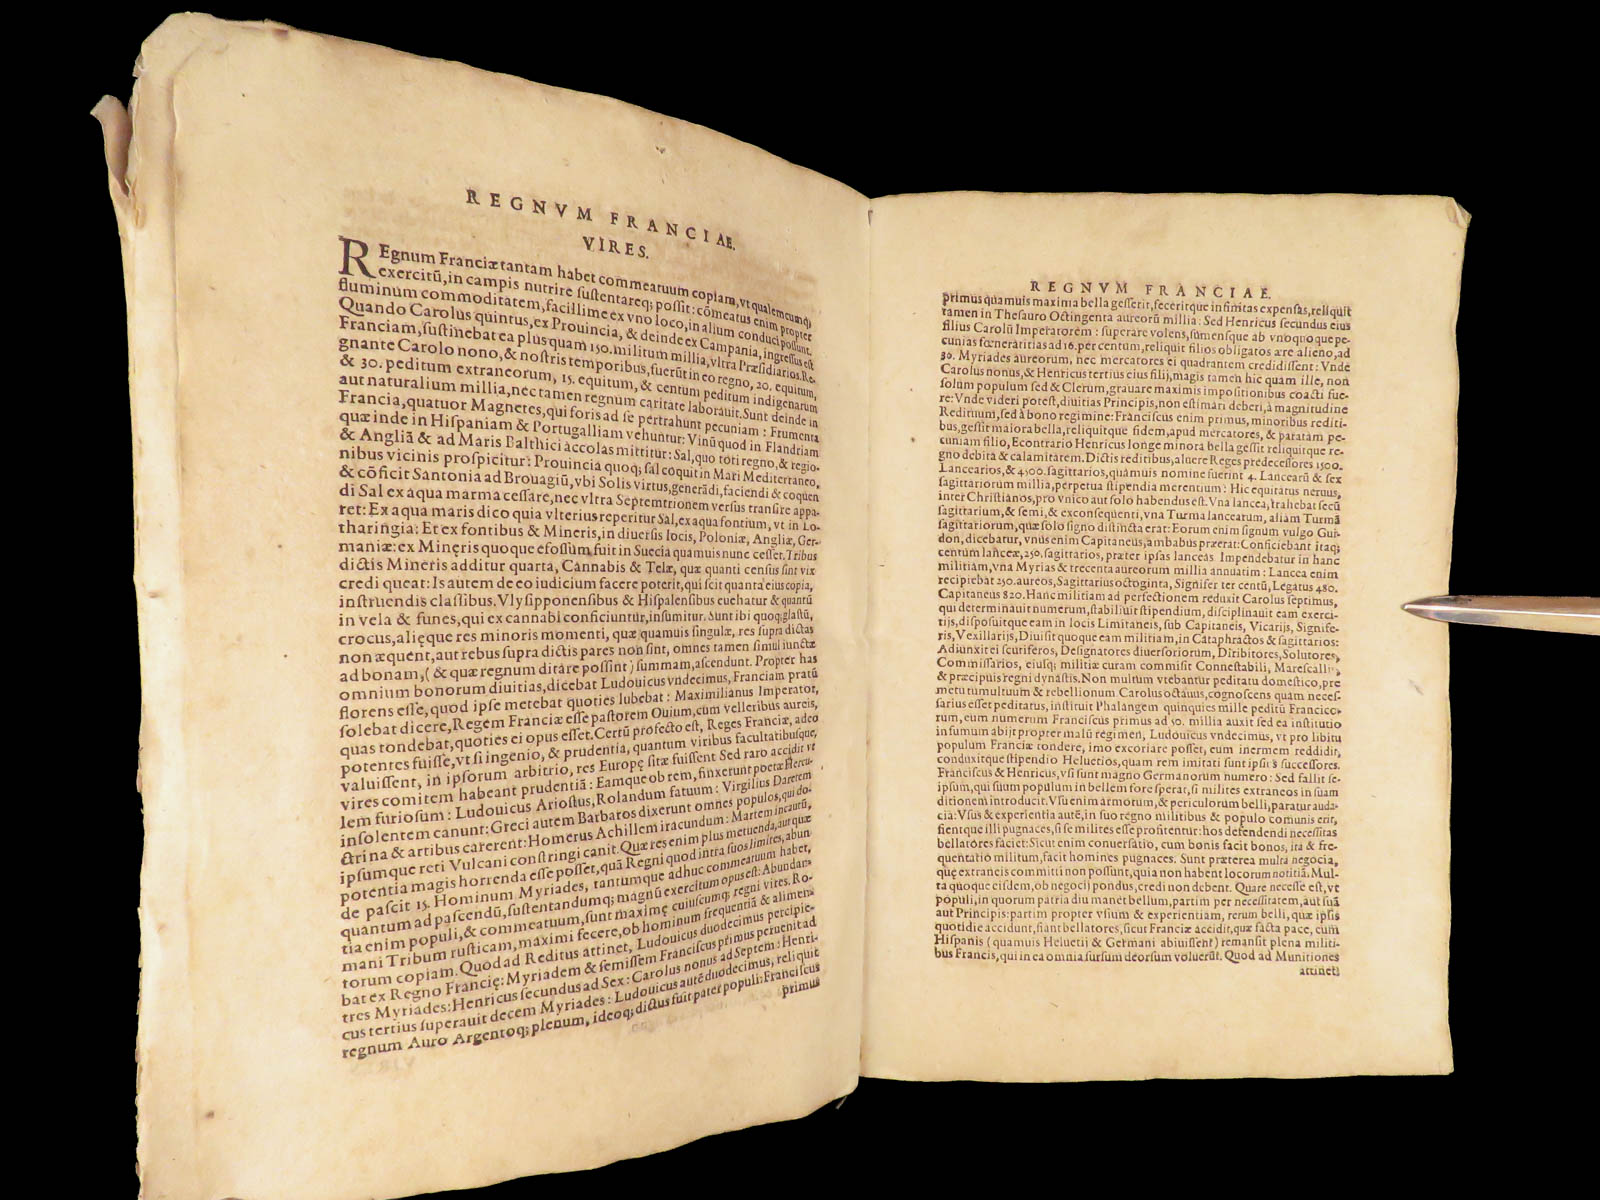 REGNVM FRANCIAE.
VIRES.
REgnum Franciæ tantam habet commeatuum copiam, vt qualemcumq;
exercitū, in campis nutrire sustentareq; possit: cōmeatus enim propter
fluminum commoditatem, facillime ex vno loco, in alium conduci possunt.
Quando Carolus quintus, ex Prouincia, & deinde ex Campania, ingressus est
Franciam, sustinebat ea plusquam 150. militum millia, vltra Præsidiarios. Re-
gnante Carolo nono, & nostris temporibus, fuerūt in eo regno, 20. equitum,
& 30. peditum extraneorum, 15. equitum, & centum peditum indigenarum
aut naturalium millia, nec tamen regnum caritate laborauit. Sunt deinde in
Francia, quatuor Magnetes, qui foris ad se pertrahunt pecuniam: Frumenta
quæ inde in Hispaniam & Portugalliam vehuntur: Vinū quod in Flandriam
& Angliā & ad Maris Balthici accolas mittitur: Sal, quo toti regno, & regio-
nibus vicinis prospicitur: Prouincia quoq; sal coquit in Mari Mediterraneo,
& cōficit Santonia ad Brouagiū, vbi Solis virtus, generādi, faciendi & coquen
di Sal ex aqua marma cessare, nec vltra Septemtrionem versus transire appa-
ret: Ex aqua maris dico quia vlterius reperitur Sal, ex aqua fontium, vt in Lo-
tharingia: Et ex fontibus & Mineris, in diuersis locis, Poloniæ, Angliæ, Ger-
maniæ: ex Mineris quoque efossum fuit in Suecia quamuis nunc cesset. Tribus
dictis Mineris additur quarta, Cannabis & Telæ, quæ quanti census sint vix
credi queat: Is autem de eo iudicium facere poterit, qui scit quanta eius copia,
instruendis classibus. Vlysipponensibus & Hispalensibus euehatur & quantū
in vela & funes, qui ex cannabi conficiuntur, insumitur. Sunt ibi quoq; glastū,
crocus, alięque res minoris momenti, quæ quamuis singulæ, res supra dictas
non æquent, aut rebus supra dictis pares non sint, omnes tamen simul iunctæ
ad bonam, (& quæ regnum ditare possint) summam, ascendunt. Propter has
omnium bonorum diuitias, dicebat Ludouicus vndecimus, Franciam pratū
florens esse, quod ipse metebat quoties lubebat: Maximilianus Imperator,
solebat dicere, Regem Franciæ esse pastorem Ouium, cum velleribus aureis,
quas tondebat, quoties ei opus esset. Certū profecto est, Reges Franciæ, adeo
potentes fuisse, vt si ingenio, & prudentia, quantum viribus facultatibusque,
valuissent, in ipsorum arbitrio, res Europę sitæ fuissent Sed raro accidit vt
vires comitem habeant prudentiā: Eamque ob rem, finxerunt poetæ Hercu-
lem furiosum: Ludouicus Ariostus, Rolandum fatuum: Virgilius Daretem
insolentem canunt: Greci autem Barbaros dixerunt omnes populos, qui do-
ctrina & artibus carerent: Homerus Achillem iracundum: Martem incautū,
ipsumque reti Vulcani constringi canit. Quæ res enim plus metuenda, aut quæ
potentia magis horrenda esse posset, quā Regni quod intra suos limites, abun
de pascit 15. Hominum Myriades, tantumque adhuc commeatuum habet,
quantum ad pascendū, sustentandumq; magnū exercitum opus est: Abundan-
tia enim populi, & commeatuum, sunt maximę cuiuscumq; regni vires. Ro-
mani Tribum rusticam, maximi fecere, ob hominum frequentiā & alimen-
torum copiam. Quod ad Reditus attinet, Ludouicus duodecimus percipie-
bat ex Regno Francię: Myriadem & semissem Franciscus primus peruenit ad
tres Myriades: Henricus secundus ad Sex: Carolus nonus ad Septem: Henri-
cus tertius superauit decem Myriades: Ludouicus autē duodecimus, reliquit
regnum Auro Argentoq; plenum, ideoq; dictus fuit pater populi: Franciscus
primus
REGNVM FRANCIAE.
primus quamuis maxima bella gesserit, feceritque infinitas expensas, reliquit
tamen in Thesauro Octingenta aureorū millia: Sed Henricus secundus eius
filius Carolū Imperatorem: superare volens, sumensque ab vnoquoque pe-
cunias fœneratitias ad 16. per centum, reliquit filios obligatos ære alieno, ad
30. Myriades aureorum, nec mercatores ei quadrantem credidissent: Vnde
Carolus nonus, & Henricus tertius eius filij, magis tamen hic quam ille, non
solum populum sed & Clerum, grauare maximis impositionibus coacti fue-
re: Vnde videri potest, diuitias Principis, non estimari deberi, à magnitudine
Redituum, sed à bono regimine: Franciscus enim primus, minoribus rediti-
bus, gessit maiora bella, reliquitque fidem, apud mercatores, & paratam pe-
cuniam filio, Econtrario Henricus longe minora bella gessit reliquitque re-
gno debita & calamitatem. Dictis reditibus, aluere Reges predecessores 1500.
Lancearios, & 4500. sagittarios, quamuis nomine fuerint 4. Lancearū & sex
sagittariorum millia, perpetua stipendia merentium: Hic equitatus neruus,
inter Christianos, pro vnico aut solo habendus est. Vna lancea, trahebat secū
sagittarium, & semi, & ex consequenti, vna Turma lancearum, aliam Turmā
sagittariorum, quæ solo signo distincta erat: Eorum enim signum vulgo Gui-
don, dicebatur, vnus enim Capitaneus, ambabus præerat: Conficiebant itaq;
centum lanceæ, 250. sagittarios, præter ipsas lanceas Impendebatur in hanc
militiam, vna Myrias & trecenta aureorum millia annuatim: Lancea enim
recipiebat 250. aureos, Sagittarius octoginta, Signifer ter centū, Legatus 480.
Capitaneus 820. Hanc militiam ad perfectionem reduxit Carolus septimus,
qui determinauit numerum, stabiliuit stipendium, disciplinauit eam exerci-
tijs, disposuitque eam in locis Limitaneis, sub Capitaneis, Vicarijs, Signife-
ris, Vexillarijs, Diuisit quoque eam militiam, in Cataphractos & sagittarios:
Adiunxit ei scutiferos, Designatores diuersoriorum, Diribitores, Solutores,
Commissarios, eiusq; militiæ curam commisit Connestabili, Marescallis,
& præcipuis regni dynastis. Non multum vtebantur peditatu domestico, pre
metu tumultuum & rebellionum Carolus octauus, cognoscens quam neces-
sarius esset peditatus, instituit Phalangem quinquies mille peditū Francico-
rum, eum numerum Franciscus primus ad 50. millia auxit sed ea institutio
in fumum abijt propter malū regimen, Ludouicus vndecimus, vt pro libitu
populum Franciæ tondere, imo excoriare posset, eum inermem reddidit,
conduxitque stipendio Heluetios, quam rem imitati sunt ipsius successores.
Franciscus & Henricus, vsi sunt magno Germanorum numero: Sed fallit se-
ipsum, qui suum populum in bellem fore sperat, si milites extraneos in suam
ditionem introducit. Vsu enim armorum, & periculorum belli, paratur auda-
cia: Vsus & experientia autē, in suo regno militibus & populo comunis erit,
fientque illi pugnaces, si se milites esse profitentur: hos defendendi necessitas
bellatores faciet: Sicut enim conuersatio, cum bonis facit bonos, ita & fre-
quentatio militum, facit homines pugnaces. Sunt præterea multa negocia,
quę extraneis committi non possunt, quia non habent locorum notitiā. Mul-
ta quoque eisdem, ob negocij pondus, credi non debent. Quare necesse est, vt
populi, in quorum patria diu manet bellum, partim per necessitatem, aut suā
aut Principis: partim propter vsum & experientiam, rerum belli, quæ ipsis
quotidie accidunt, fiant bellatores, sicut Franciæ accidit, quæ facta pace, cum
Hispanis (quamuis Heluetii & Germani abiuissent) remansit plena militi-
bus Francis, qui in ea omnia sursum deorsum voluerūt. Quod ad Munitiones
attinet